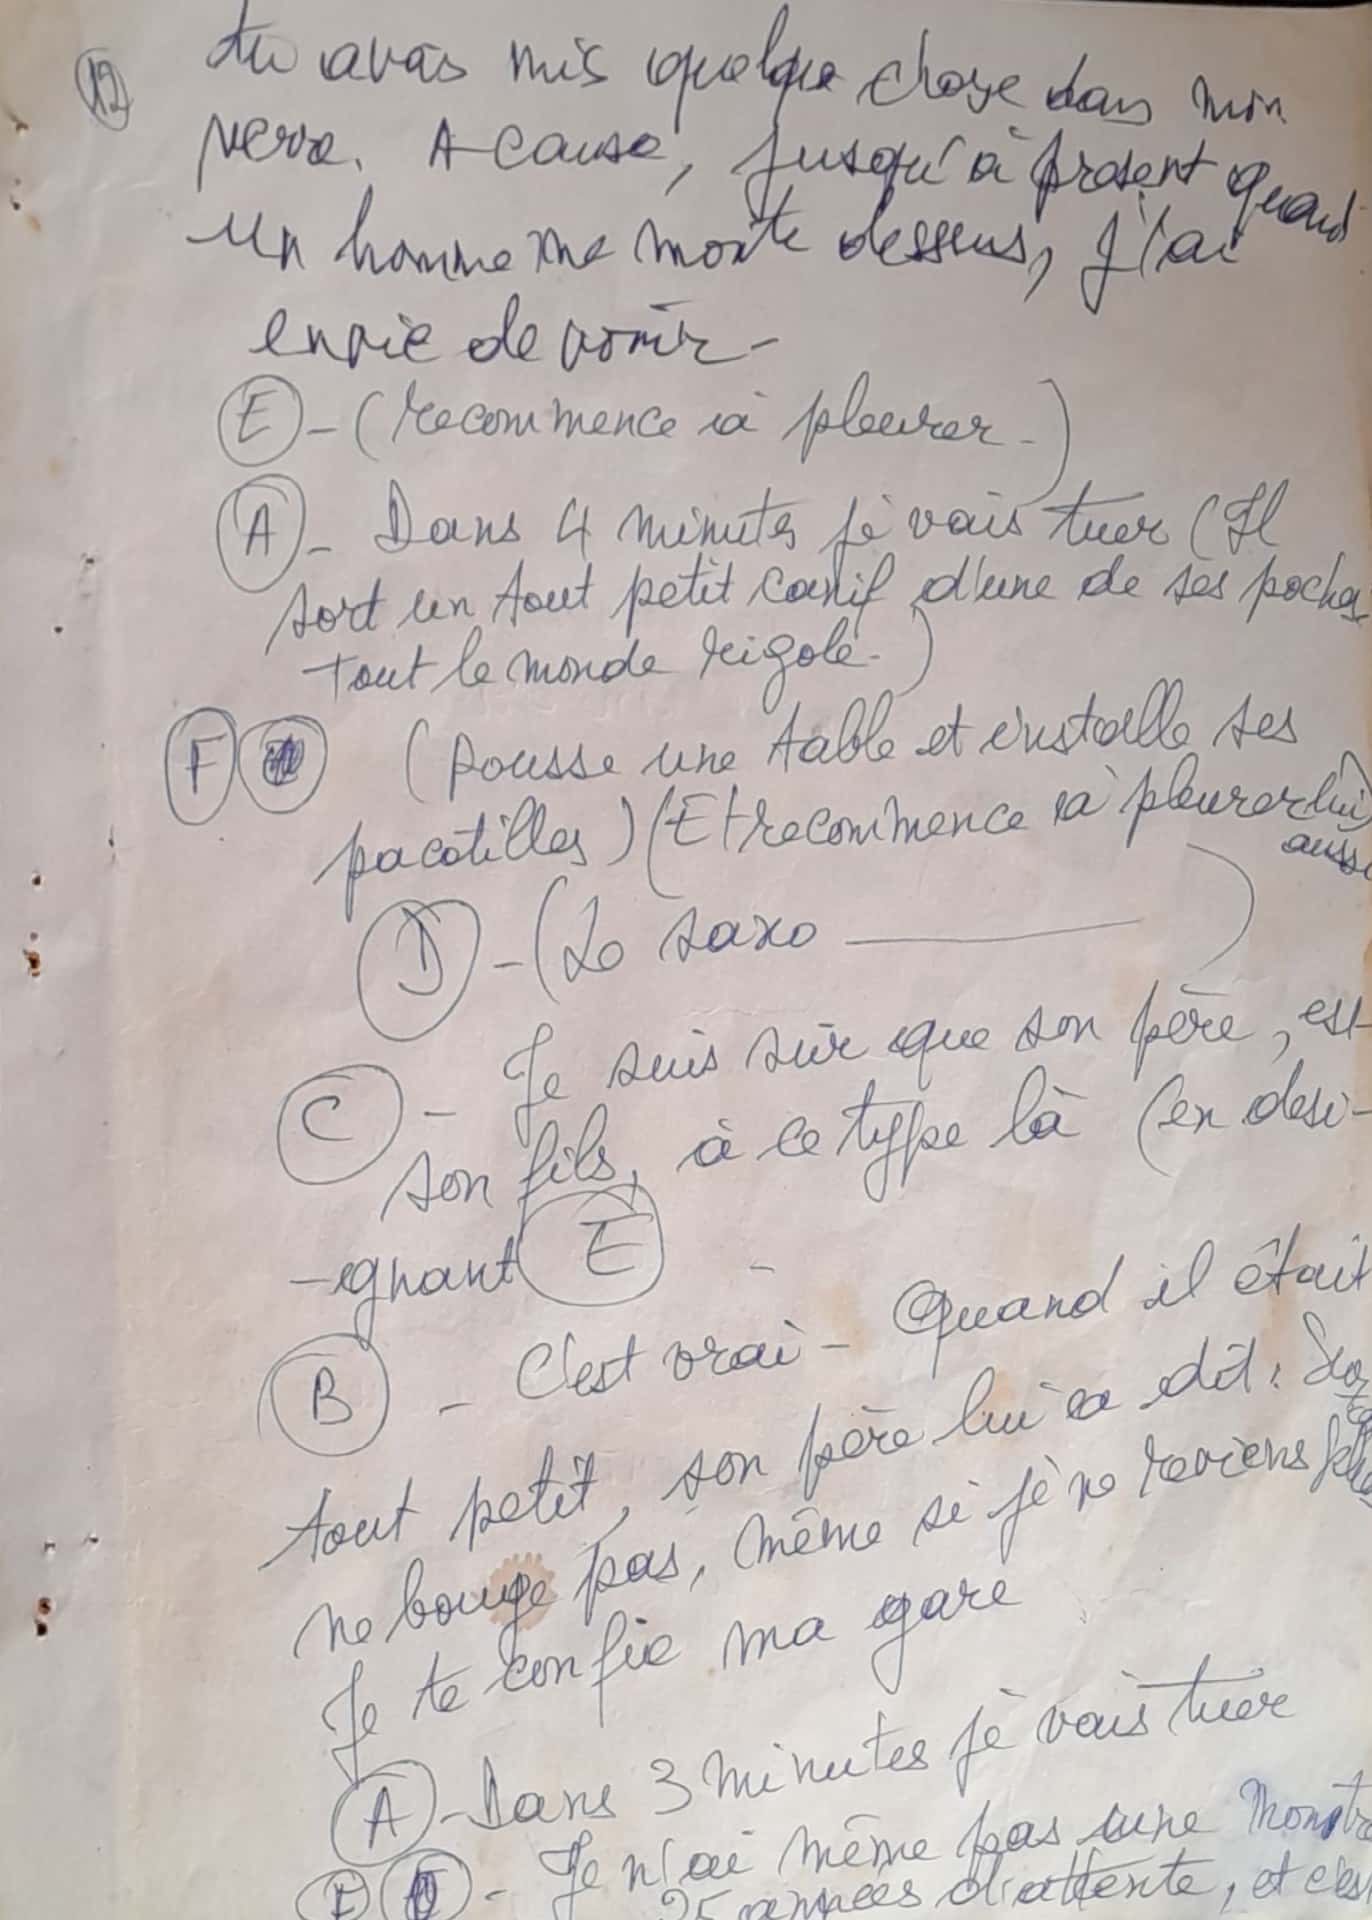 12
tu avais mis quelque chose dans mon
verre. A cause, jusqu'à présent quand
un homme me monte dessus, j'ai
envie de vomir -
E - (recommence à pleurer -)
A - Dans 4 minutes je vais tuer (Il
sort un tout petit canif d'une de ses poches
tout le monde rigole -)
F (pousse une table et installe ses
pacotilles) (Et recommence à pleurer lui
aussi
D - (Le saxo ———)
C - Je suis sûr que son père, est
son fils, à ce type là (en desi-
-gnant E -
B - C'est vrai - Quand il était
tout petit, son père lui a dit :
ne bouge pas, même si je ne reviens plus
Je te confie ma gare
A - Dans 3 minutes je vais tuer
- Je n'ai même pas une montre
25 années d'attente, et c'est